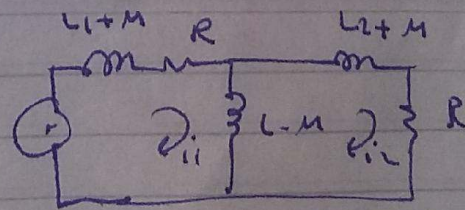 L1+M R L2+M
i1 L-M i2 R